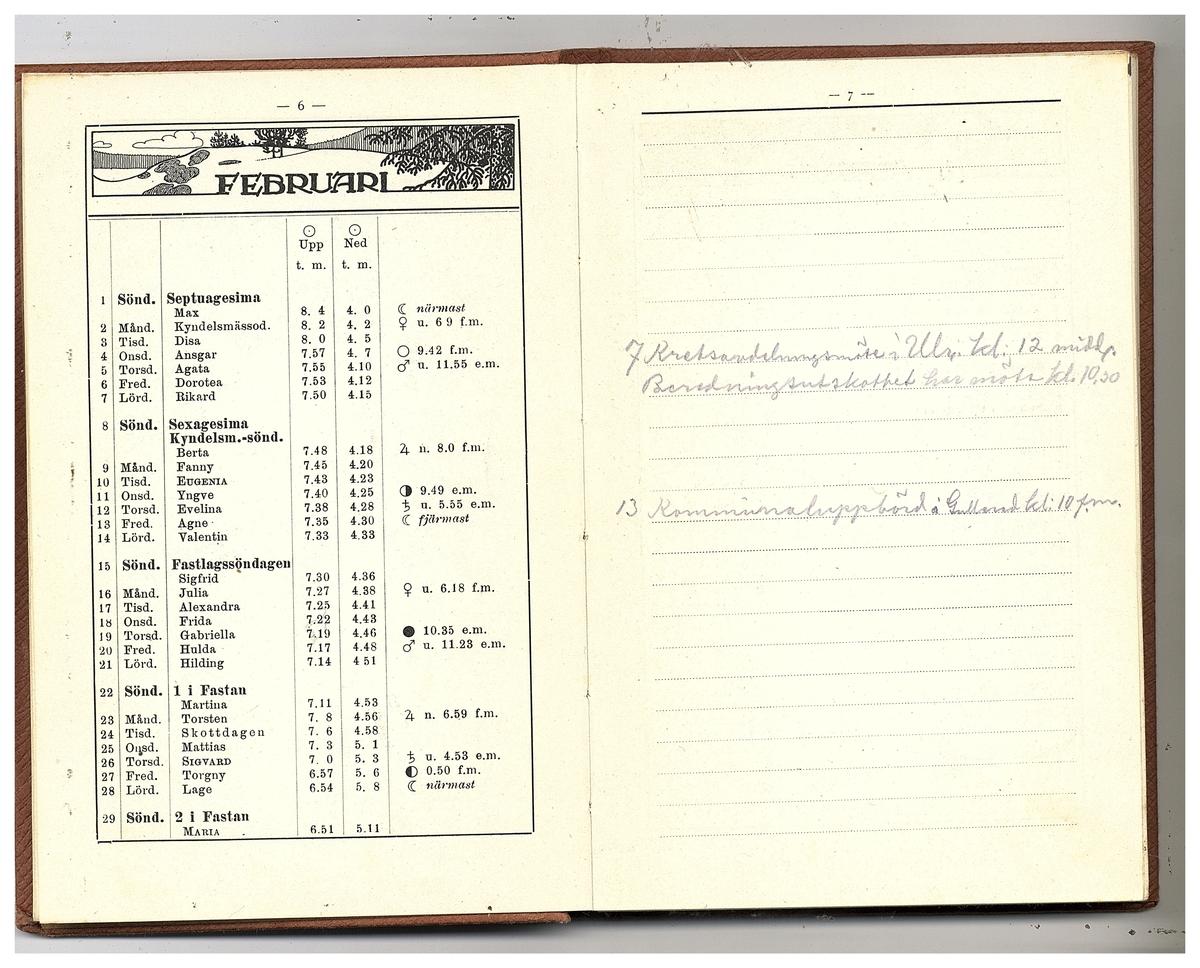 — 6 —
FEBRUARI
☉ ☉
Upp Ned
t. m. t. m.
1 Sönd. Septuagesima
Max 8. 4 4. 0 ☾ närmast
2 Månd. Kyndelsmässod. 8. 2 4. 2 ♀ u. 6 9 f.m.
3 Tisd. Disa 8. 0 4. 5
4 Onsd. Ansgar 7.57 4. 7 ○ 9.42 f.m.
5 Torsd. Agata 7.55 4.10 ♂ u. 11.55 e.m.
6 Fred. Dorotea 7.53 4.12
7 Lörd. Rikard 7.50 4.15
8 Sönd. Sexagesima
Kyndelsm.-sönd.
Berta 7.48 4.18 ♃ n. 8.0 f.m.
9 Månd. Fanny 7.45 4.20
10 Tisd. EUGENIA 7.43 4.23
11 Onsd. Yngve 7.40 4.25 ◑ 9.49 e.m.
12 Torsd. Evelina 7.38 4.28 ♄ u. 5.55 e.m.
13 Fred. Agne 7.35 4.30 ☾ fjärmast
14 Lörd. Valentin 7.33 4.33
15 Sönd. Fastlagssöndagen
Sigfrid 7.30 4.36
16 Månd. Julia 7.27 4.38 ♀ u. 6.18 f.m.
17 Tisd. Alexandra 7.25 4.41
18 Onsd. Frida 7.22 4.43
19 Torsd. Gabriella 7.19 4.46 ● 10.35 e.m.
20 Fred. Hulda 7.17 4.48 ♂ u. 11.23 e.m.
21 Lörd. Hilding 7.14 4 51
22 Sönd. 1 i Fastan
Martina 7.11 4.53
23 Månd. Torsten 7. 8 4.56 ♃ n. 6.59 f.m.
24 Tisd. Skottdagen 7. 6 4.58
25 Onsd. Mattias 7. 3 5. 1
26 Torsd. SIGVARD 7. 0 5. 3 ♄ u. 4.53 e.m.
27 Fred. Torgny 6.57 5. 6 ◐ 0.50 f.m.
28 Lörd. Lage 6.54 5. 8 ☾ närmast
29 Sönd. 2 i Fastan
MARIA 6.51 5.11
— 7 —
7 Kretsavdelningsmöte i Ulr. kl. 12 midd.
Beredningsutskottet har möte kl. 10,30
13 Kommunaluppbörd i kl. 10 f.m.